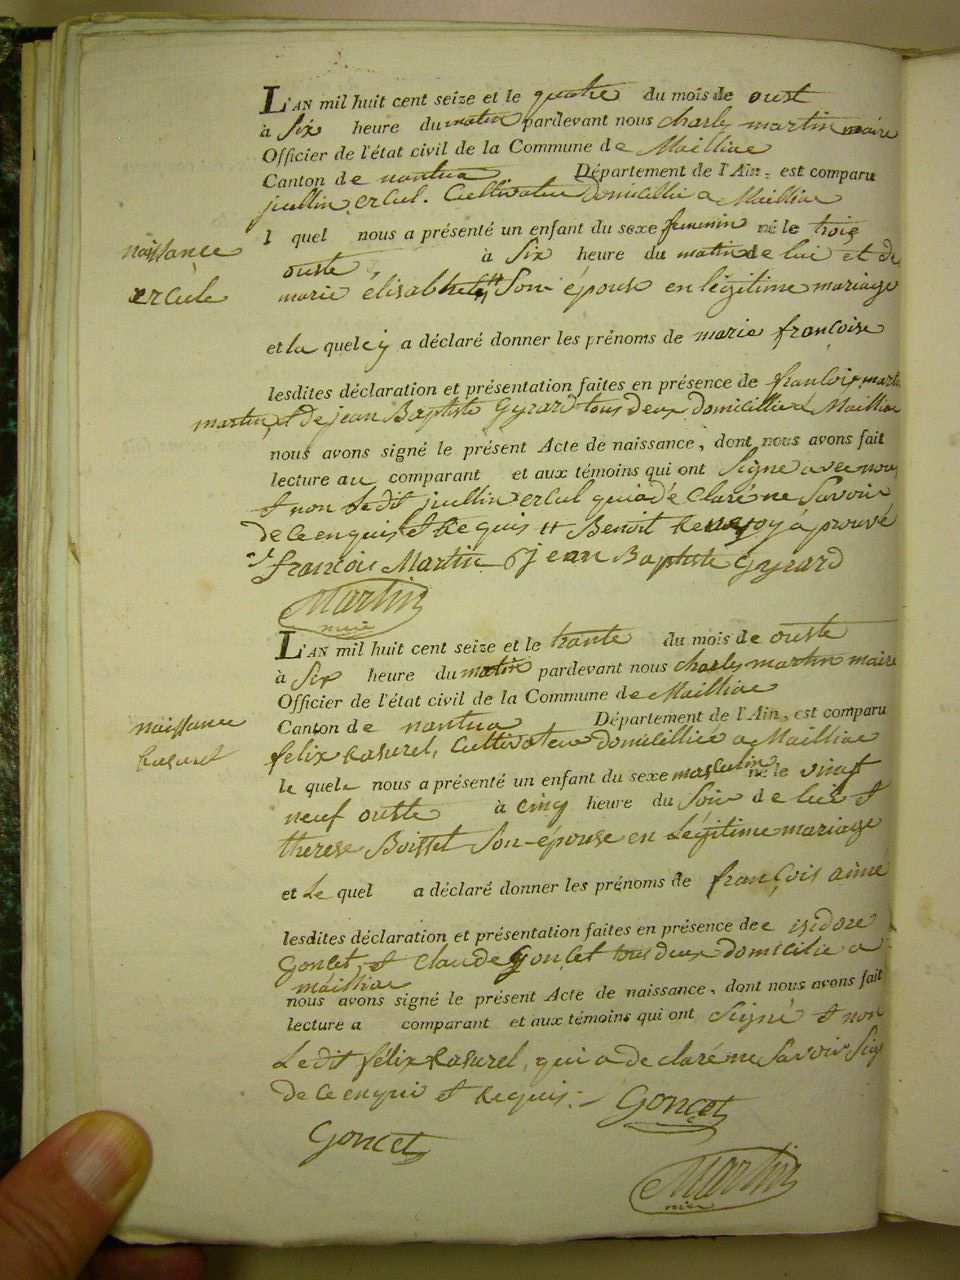 L'AN mil huit cent seize et le quatre du mois de oust
à Six heure du matin pardevant nous charly martin maire
Officier de l'état civil de la Commune de Mailliac
Canton de nantua Département de l'Ain, est comparu
jullin ercul. Cultivateur Domicillié a Mailliac
l quel nous a présenté un enfant du sexe femenin né le trois
naissance
ercule
ouste, à Six heure du matin de lui et de
marie élisabhet Son épouse en légitime mariage
et la quel cy a déclaré donner les prénoms de marie françoise
lesdites déclaration et présentation faites en présence de françois martin
martin, et de jean Baptiste Gyrard tous deux domicillié a Mailliac
nous avons signé le présent Acte de naissance, dont nous avons fait
lecture au comparant et aux témoins qui ont Signé avec nous
et non Ledit jullin ercul qui a déclaré ne Savoir
de ce enquis et Requis Benoit aprouvé
françois Martin jean Baptiste Gyrard
Martin
maire
L'AN mil huit cent seize et le trante du mois de ouste
à Six heure du matin pardevant nous charly martin maire
Officier de l'état civil de la Commune de Mailliac
Canton de nantua Département de l'Ain, est comparu
naissance
Rasurel
félix Rasurel, Cultivateur domicillié a Mailliac
le quele nous a présenté un enfant du sexe masculin né le vingt
neuf ouste à cinq heure du Soir de lui et
therese Boisset Son épouse en Légitime mariage
et Le quel a déclaré donner les prénoms de françois aimé
lesdites déclaration et présentation faites en présence de isidore
Goncet, et claude Goncet tous deux domicilié a
mailliac
nous avons signé le présent Acte de naissance, dont nous avons fait
lecture a comparant et aux témoins qui ont Signé et non
Le dit félix Rasurel, qui a declaré ne Savoir Sig
de ce enqui et Requis. Goncet
Goncet
Martin
maire